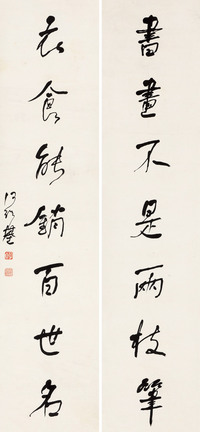 書畫不是兩枝筆
衣食能銷百世名
何紹基